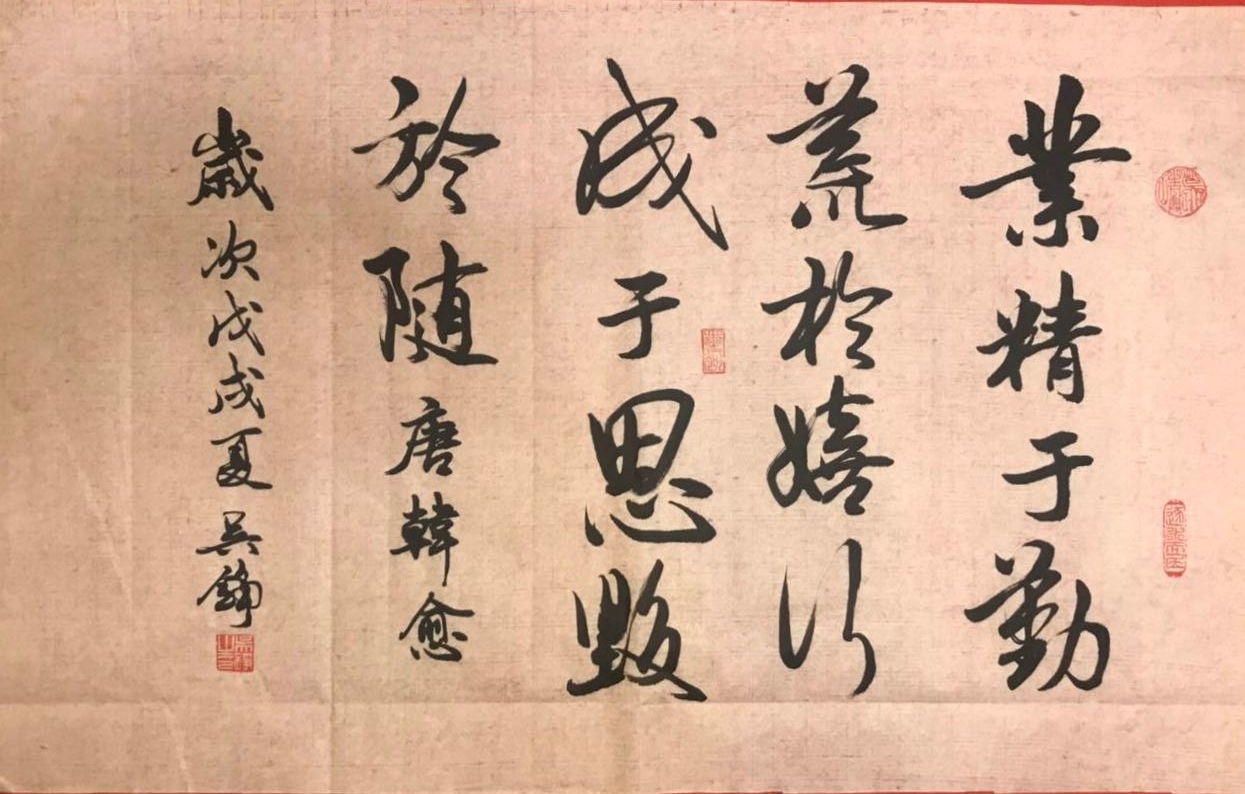 業精于勤
荒於嬉行
成于思毀
於随唐韓愈
歲次戊戌夏吳